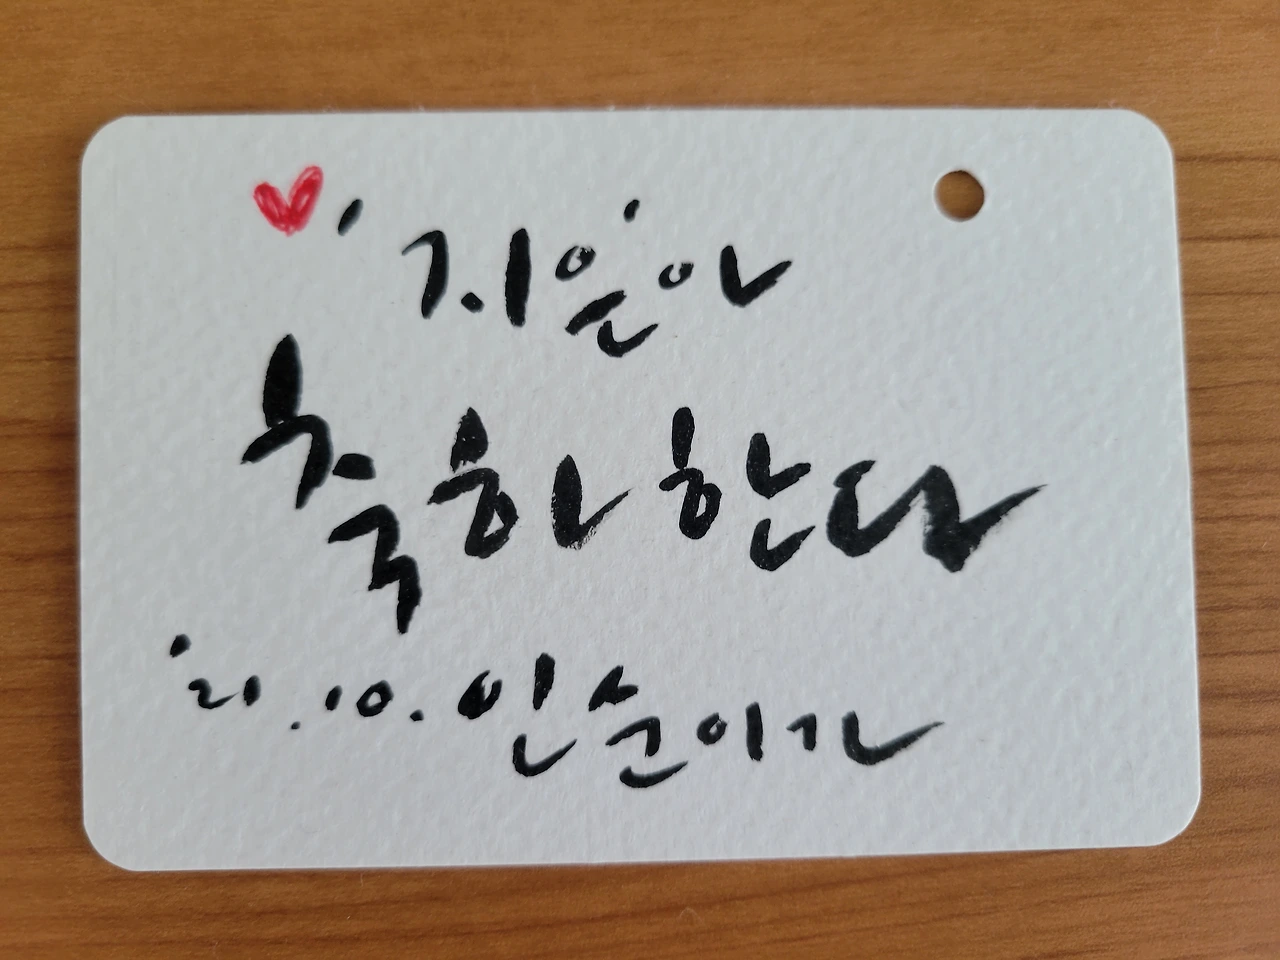 지은아
축하한다
'21.10. 인순이가